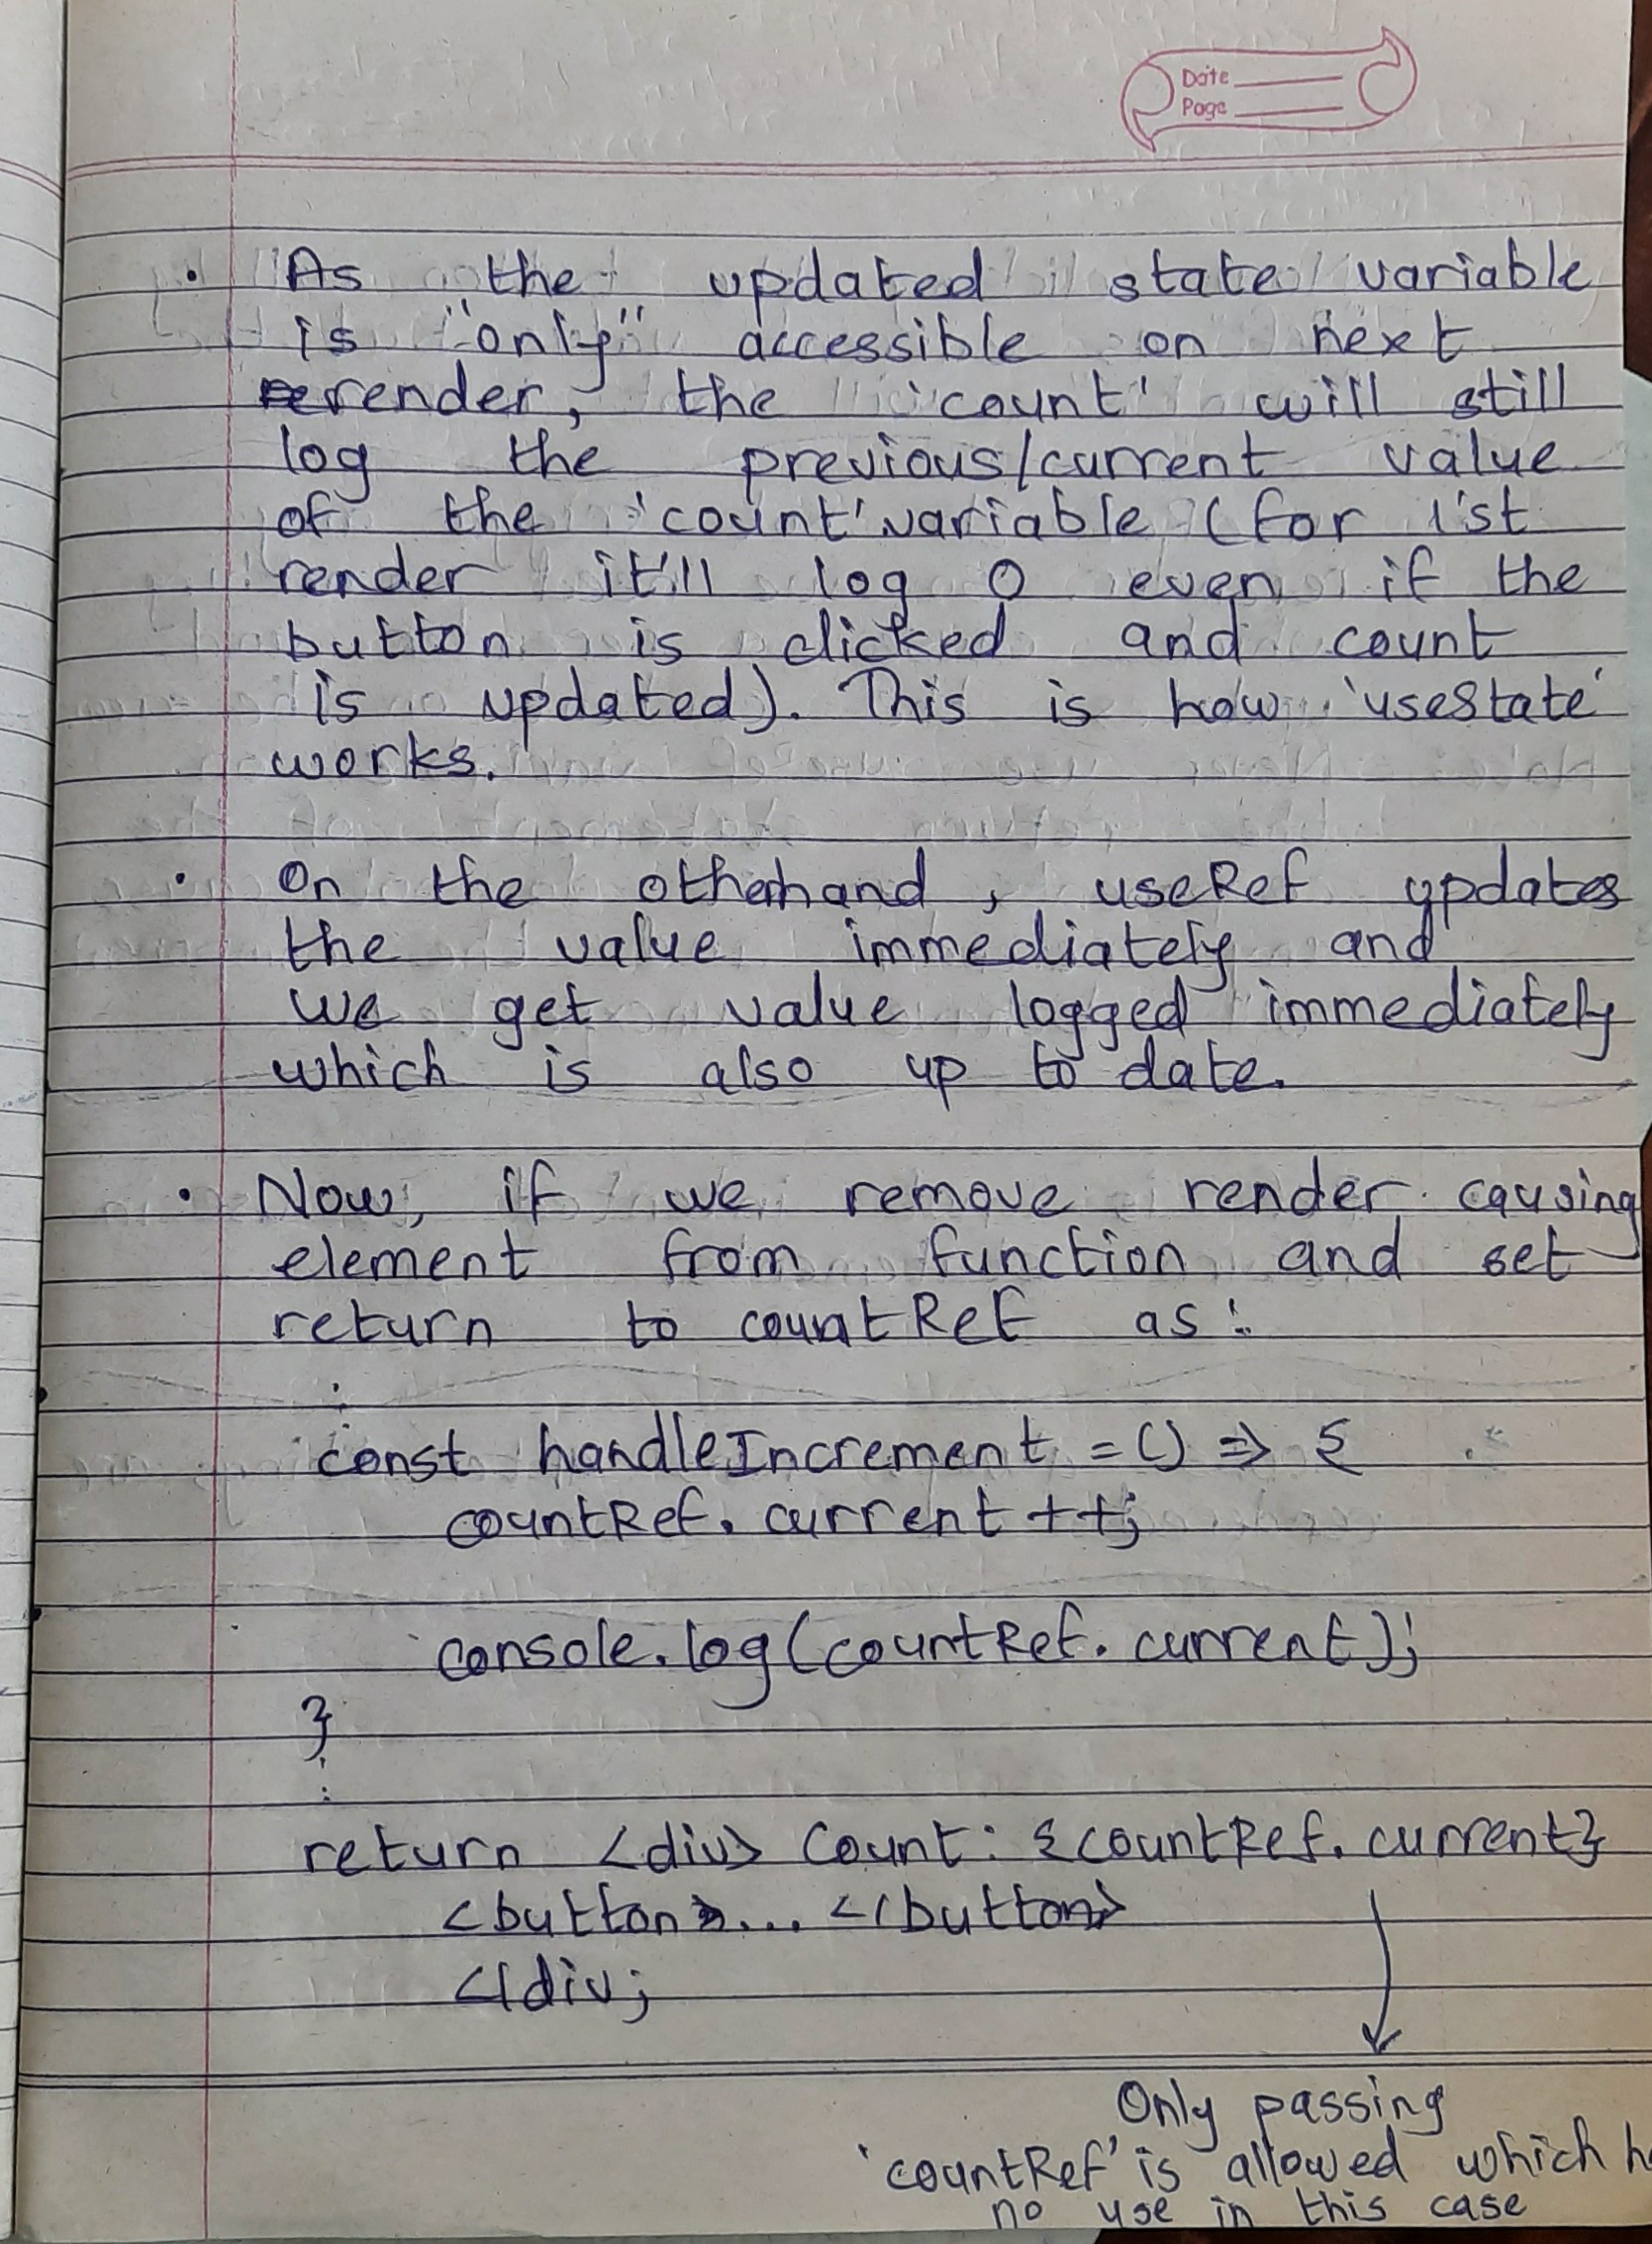 Date
Page
• As the updated state variable
is "only" accessible on next
render, the 'count' will still
log the previous/current value
of the 'count' variable (for 1'st
render it'll log 0 even if the
button is clicked and count
is updated). This is how 'useState'
works.
• On the otherhand, useRef updates
the value immediately and
we get value logged immediately
which is also up to date.
• Now, if we remove render causing
element from function and set
return to countRef as:
:
const handleIncrement = () => {
countRef.current++;
console.log(countRef.current);
}
:
return <div> Count: {countRef.current}
<button>... </button>
</div;
Only passing
'countRef' is allowed which
no use in this case